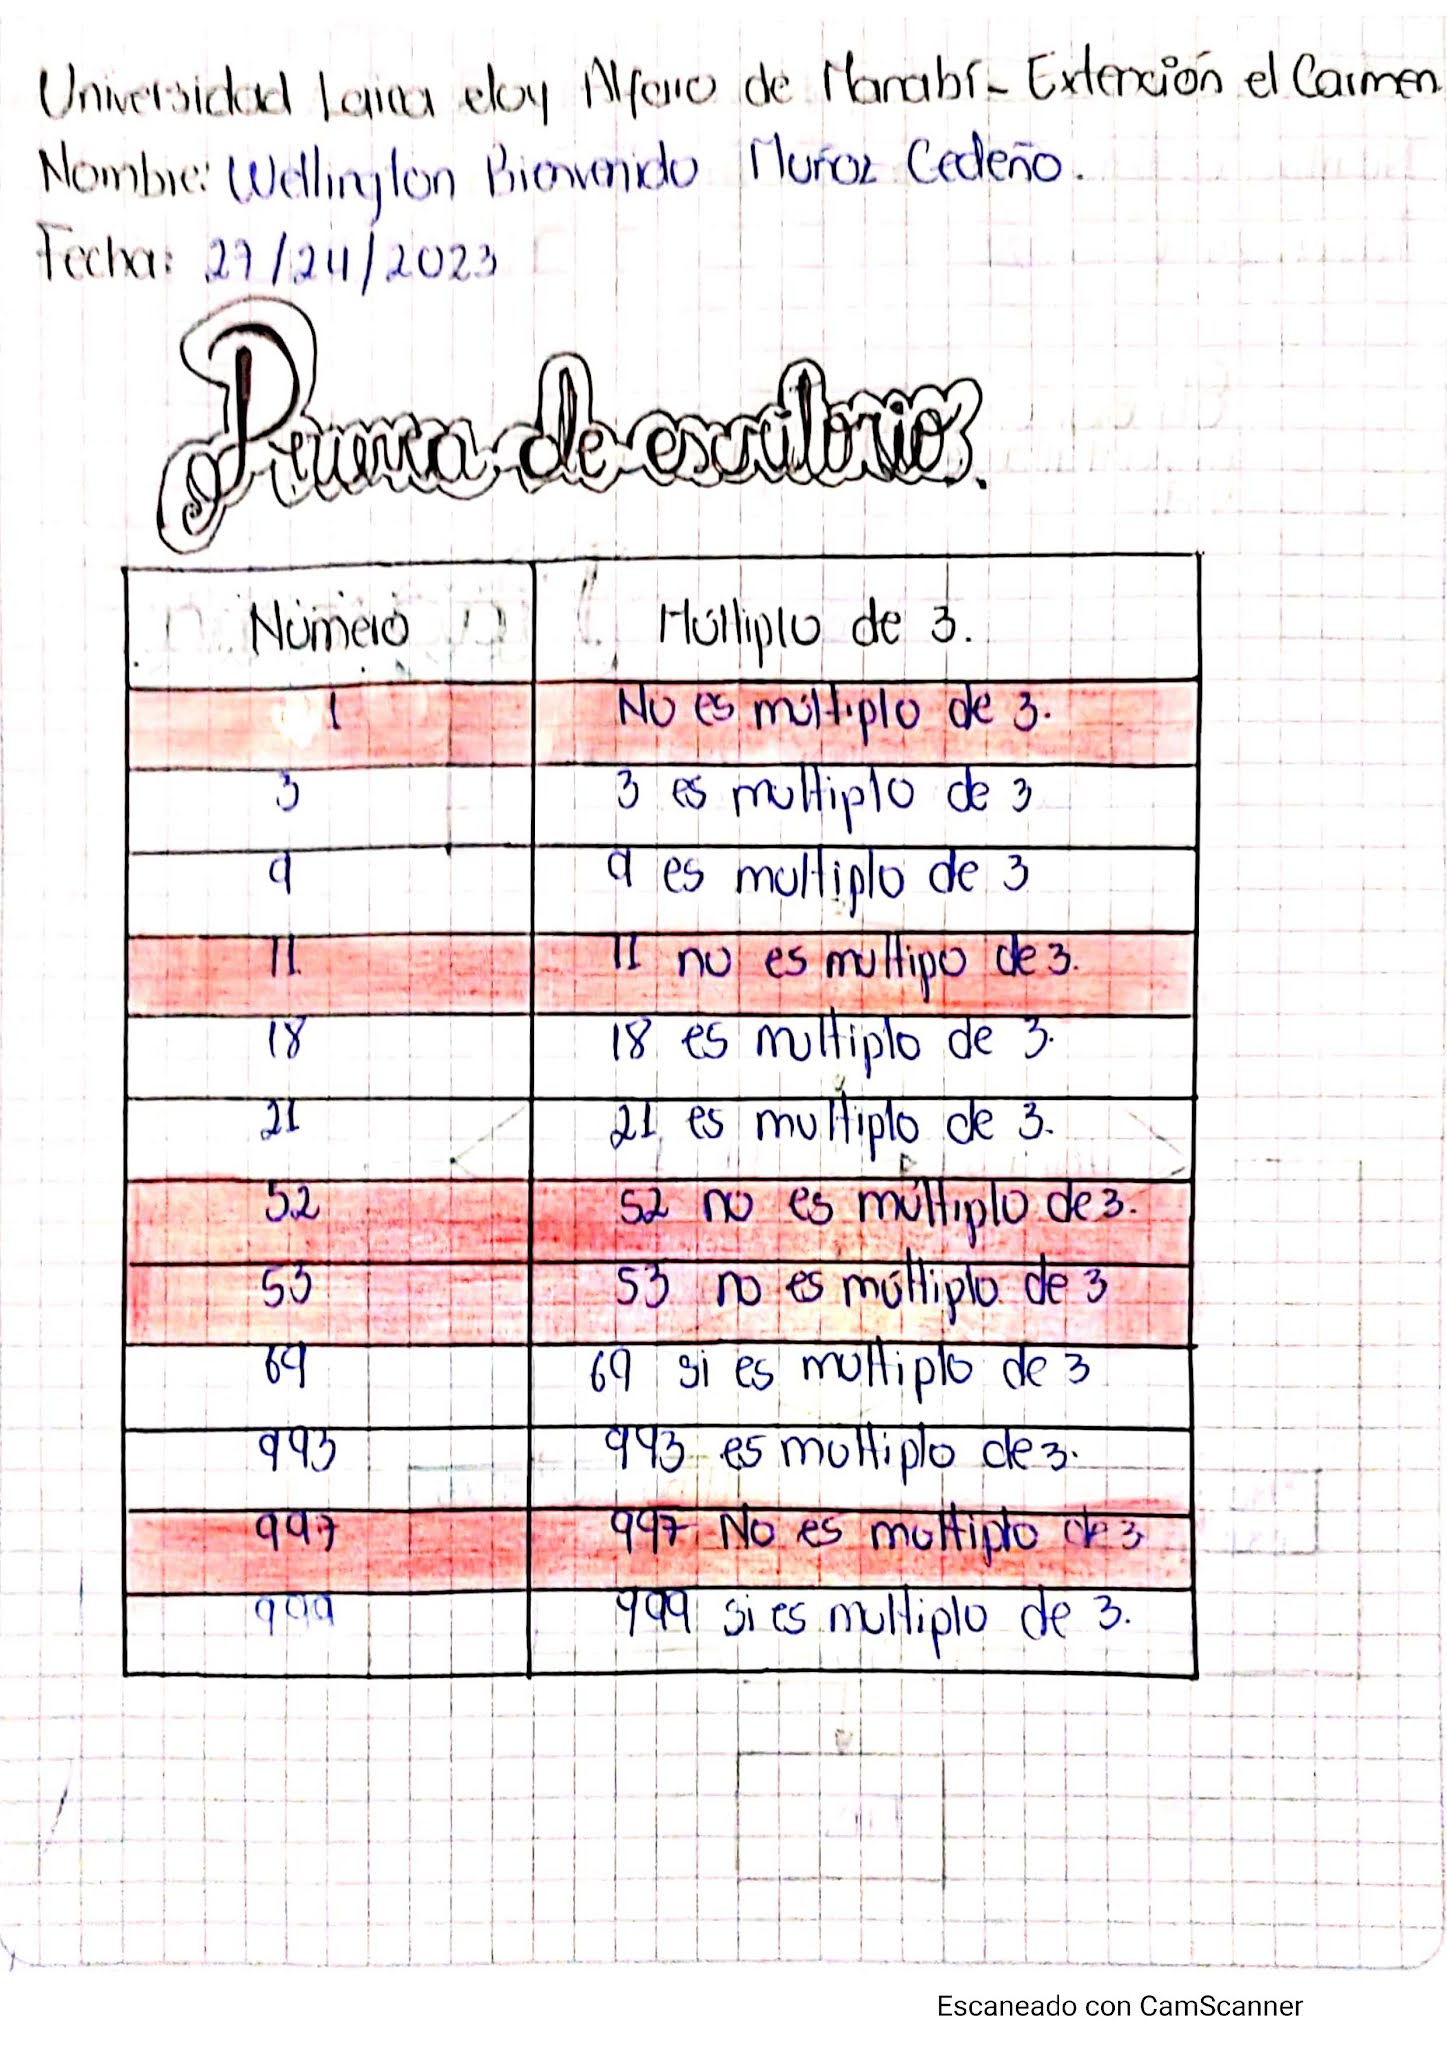 Universidad Laica eloy Alfaro de Manabí - Extención el Carmen
Nombre: Wellington Bienvenido Muñoz Cedeño.
Fecha: 27/24/2023
Prueva de escritorio.
Número Múltiplo de 3.
1 No es múltiplo de 3.
3 3 es multiplo de 3
9 9 es multiplo de 3
11. 11 no es multipo de 3.
18 18 es multiplo de 3.
21 21 es multiplo de 3.
52 52 no es múltiplo de 3.
53 53 no es múltiplo de 3
69 69 si es multiplo de 3
993 993 es multiplo de 3.
997 997 No es multiplo de 3
999 999 si es multiplo de 3.
Escaneado con CamScanner